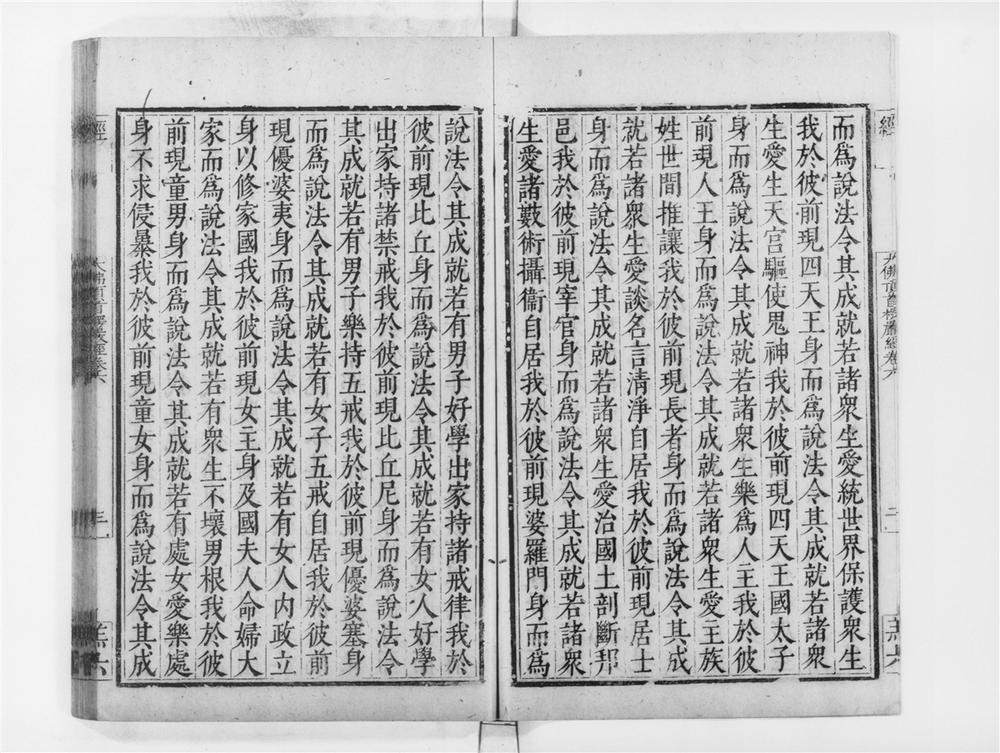 而爲說法令其成就若諸衆生愛統世界保護衆生
我於彼前現四天王身而爲說法令其成就若諸衆
生愛生天宮驅使鬼神我於彼前現四天王國太子
身而爲說法令其成就若諸衆生樂爲人主我於彼
前現人王身而爲說法令其成就若諸衆生愛主族
姓世間推讓我於彼前現長者身而爲說法令其成
就若諸衆生愛談名言清淨自居我於彼前現居士
身而爲說法令其成就若諸衆生愛治國土剖斷邦
邑我於彼前現宰官身而爲說法令其成就若諸衆
生愛諸數術攝衞自居我於彼前現婆羅門身而爲
說法令其成就若有男子好學出家持諸戒律我於
彼前現比丘身而爲說法令其成就若有女人好學
出家持諸禁戒我於彼前現比丘尼身而爲說法令
其成就若有男子樂持五戒我於彼前現優婆塞身
而爲說法令其成就若有女子五戒自居我於彼前
現優婆夷身而爲說法令其成就若有女人內政立
身以修家國我於彼前現女主身及國夫人命婦大
家而爲說法令其成就若有衆生不壞男根我於彼
前現童男身而爲說法令其成就若有處女愛樂處
身不求侵暴我於彼前現童女身而爲說法令其成